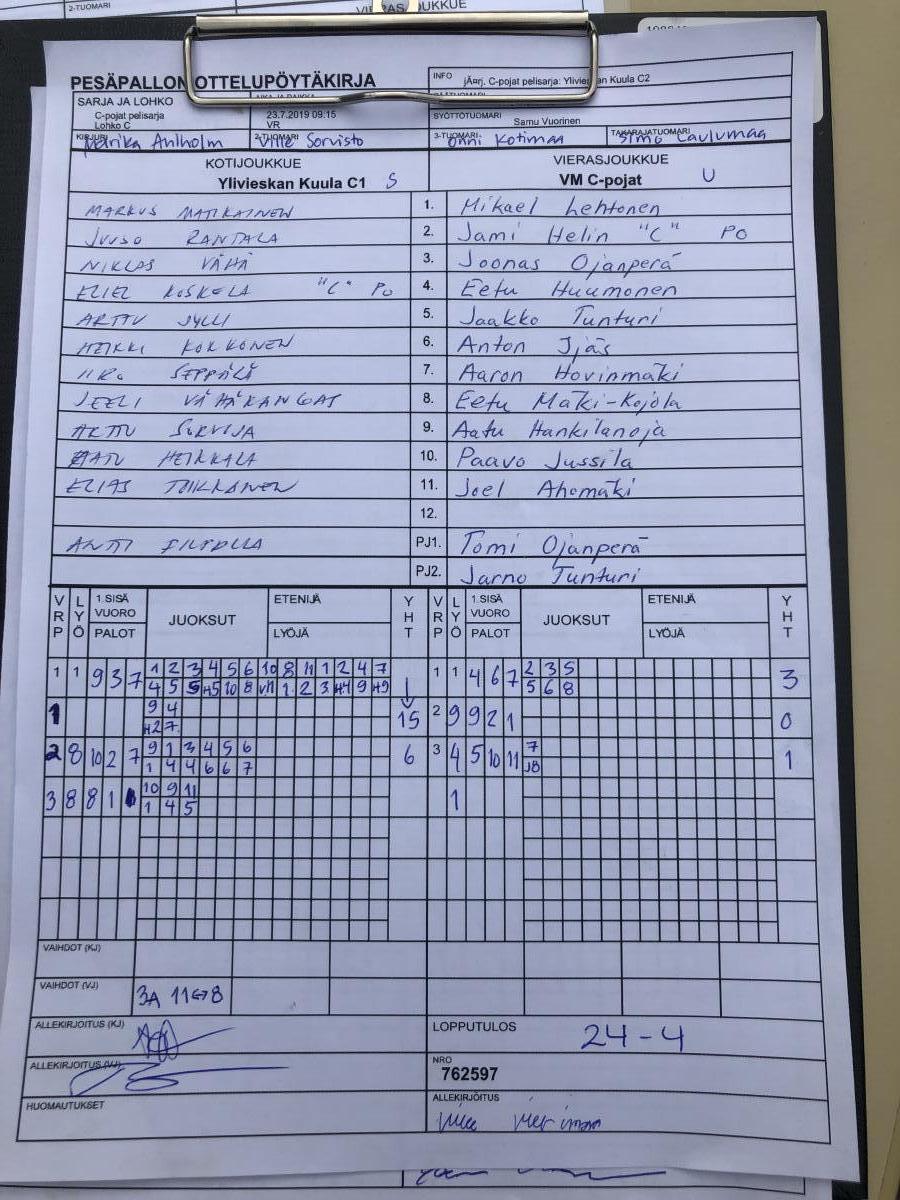 2-TUOMARI
PESÄPALLON OTTELUPÖYTÄKIRJA
INFO
jÄ¤rj, C-pojat pelisarja: Ylivieskan Kuula C2
SARJA JA LOHKO
C-pojat pelisarja
Lohko C
23.7.2019 09:15
VR
SYÖTTÖTUOMARI
Samu Vuorinen
KIRJURI
Marika Anlholm
2-TUOMARI
Ville Sorvisto
3-TUOMARI
Onni Kotimaa
TAKARAJATUOMARI
Simo Laulumaa
KOTIJOUKKUE
Ylivieskan Kuula C1 S
VIERASJOUKKUE
VM C-pojat U
MARKUS MATIKAINEN 1. Mikael Lehtonen
JUUSO RANTALA 2. Jami Helin "C" PO
NIKLAS VÄHÄ 3. Joonas Ojanperä
ELIEL KOSKELA "C" PO 4. Eetu Huumonen
ARTTU JYLLI 5. Jaakko Tunturi
HEIKKI KOKKONEN 6. Anton Ijäs
IIRO SEPPÄLÄ 7. Aaron Hovinmäki
JEELI VÄHÄKANGAS 8. Eetu Mäki-Kojola
ARTTU SORVIJA 9. Aatu Hankilanoja
AATU HEIKKALA 10. Paavo Jussila
ELIAS TOIKKANEN 11. Joel Ahomäki
12.
ANTTI PJ1. Tomi Ojanperä
PJ2. Jarno Tunturi
VRP LYÖ 1.SISÄ VUORO PALOT JUOKSUT ETENIJÄ LYÖJÄ YHT VRP LYÖ 1.SISÄ VUORO PALOT JUOKSUT ETENIJÄ LYÖJÄ YHT
1 1 9 3 7 1 2 3 4 5 6 10 8 11 1 2 4 7 1 1 4 6 7 2 3 5 3
4 5 5 H5 10 8 V11 1 2 3 H4 9 H9 5 6 8
1 9 4 15 2 9 9 2 1 0
H2 7
2 8 10 2 7 9 1 3 4 5 6 6 3 4 5 10 11 7 1
1 4 4 6 6 7 J8
3 8 8 1 10 9 11 1
1 4 5
VAIHDOT (KJ)
VAIHDOT (VJ) 3A 11↔8
ALLEKIRJOITUS (KJ)
LOPPUTULOS 24-4
ALLEKIRJOITUS (VJ)
NRO
762597
HUOMAUTUKSET
ALLEKIRJOITUS